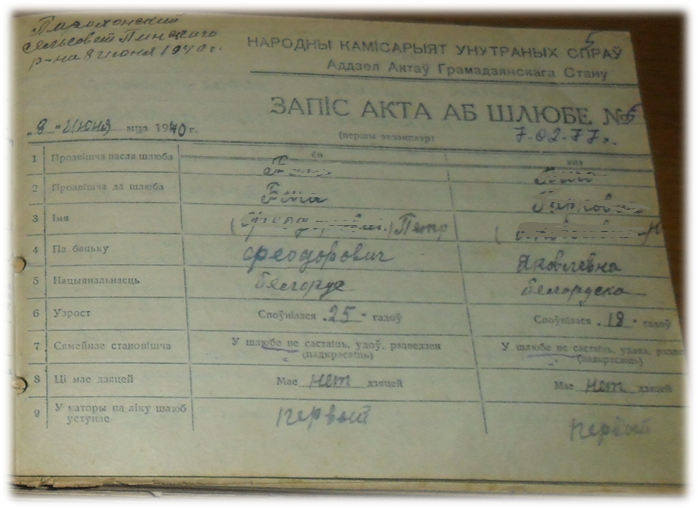 сельсовет Пинского
р-на 8 июня 1940 г.
5
НАРОДНЫ КАМІСАРЫЯТ УНУТРАНЫХ СПРАЎ
Аддзел Актаў Грамадзянскага Стану
ЗАПІС АКТА АБ ШЛЮБЕ № 5
(першы экзэмпляр)
"8" Июня мца 1940 г.
7.02.77г.
ён яна
1 Прозвішча пасля шлюба
2 Прозвішча да шлюба
3 Імя Петр
4 Па бацьку Феодорович Яковлевна
5 Нацыянальнасць Белорус Белоруска
6 Узрост Споўнілася 25 гадоў Споўнілася 18 гадоў
7 Сямейнае становішча У шлюбе не састаіць, удоў, разведзен У шлюбе не састаіць, удава, разве
(падкрэсліць) (падкрэсліць)
8 Ці мае дзяцей Мае нет дзяцей Мае нет дзяцей
9 У каторы па ліку шлюб первый первый
уступае